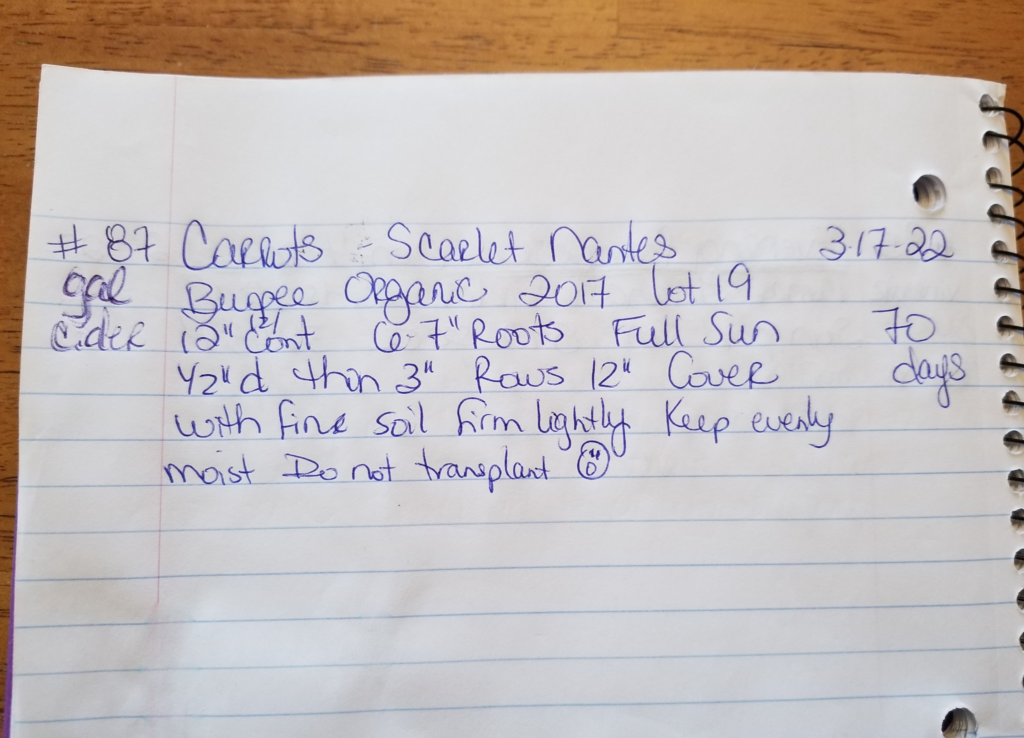 # 87 Carrots - Scarlet Nantes 3.17.22
gal Burpee Organic 2017 Lot 19
Cider 12" Cont 6-7" Roots Full Sun 70
1/2" d thin 3" Rows 12" Cover days
with fine soil firm lightly Keep evenly
moist Do not transplant